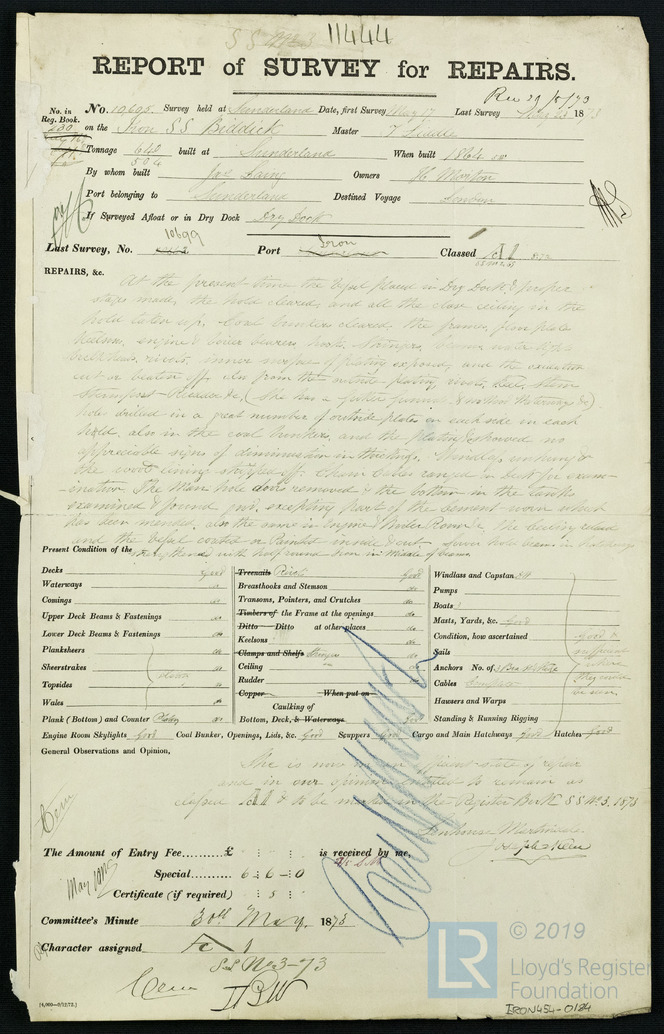 SS No 3 11444
REPORT of SURVEY for REPAIRS.
Rec 29/5/73
No. in Reg. Book. No. 10695. Survey held at Sunderland Date, first Survey May 17 Last Survey May 23 1873
on the Iron SS Biddick Master T Liddle
Tonnage 640 built at Sunderland When built 1864
504
By whom built Jas Laing Owners H. Morton
Port belonging to Sunderland Destined Voyage London
If Surveyed Afloat or in Dry Dock Dry Dock
10699
Last Survey, No. Port Iron Classed A1 1872
REPAIRS, &c.
At the present time the Vessel placed in Dry Dock & proper
stages made, the hold cleared, and all the close ceiling in the
hold taken up, Coal bunkers cleared, the frames, floor plates
Keelsons, engine & boiler bearers, hooks, Stringers, beams, water tight
bulkheads, rivets, inner surface of plating exposed, and the oxidation
cut or beaten off. Also from the outside plating, rivets, Keel, Stem
Sternpost, Rudder &c, (She has a
holes drilled in a great number of outside plates on each side in each
hold, also in the coal bunkers, and the plating showed no
appreciable signs of diminution in thickness. Windlass unhung &
the wood lining stripped off. Chain Cables ranged in dock for exam-
-ination. The Man hole doors removed & the bottom in the tanks
examined & found good, excepting part of the cement worn which
has been mended, also the same in Engine & Boiler Room &c. The ceiling relaid
and the Vessel coated or Painted inside & out.
Present Condition of the strengthened with half round Iron in Middle of beams
Decks good
Waterways do
Comings do
Upper Deck Beams & Fastenings do
Lower Deck Beams & Fastenings do
Planksheers do
Sheerstrakes
Topsides do
Wales do
Plank (Bottom) and Counter Plating do
Treenails Rivets good
Breasthooks and Stemson do
Transoms, Pointers, and Crutches do
Timbers of the Frame at the openings do
Ditto Ditto at other places do
Keelsons do
Clamps and Shelfs Stringers do
Ceiling do
Rudder do
Copper When put on
Caulking of
Bottom, Deck, & Waterways good
Windlass and Capstan
Pumps
Boats
Masts, Yards, &c. Good
Condition, how ascertained good &
Sails sufficient
Anchors No. of 3 Bow
Cables
Hawsers and Warps
Standing & Running Rigging
Engine Room Skylights Good Coal Bunker, Openings, Lids, &c. Good Scuppers Good Cargo and Main Hatchways Good Hatches Good
General Observations and Opinion,
She is now in an efficient state of repair
and in our opinion entitled to remain as
classed A1 & to be marked in the Register Book S S No 3. 1873
Joseph Keen
The Amount of Entry Fee.........£ : : is received by me,
Special ...... 6 : 6 : 0
Certificate (if required) : 5 :
Committee's Minute 30th May, 1873
Character assigned A 1
SS No 3-73
IBW
[4,000—9/12/72.]
© 2019
LR
Lloyd's Register
Foundation
IRON454-0184